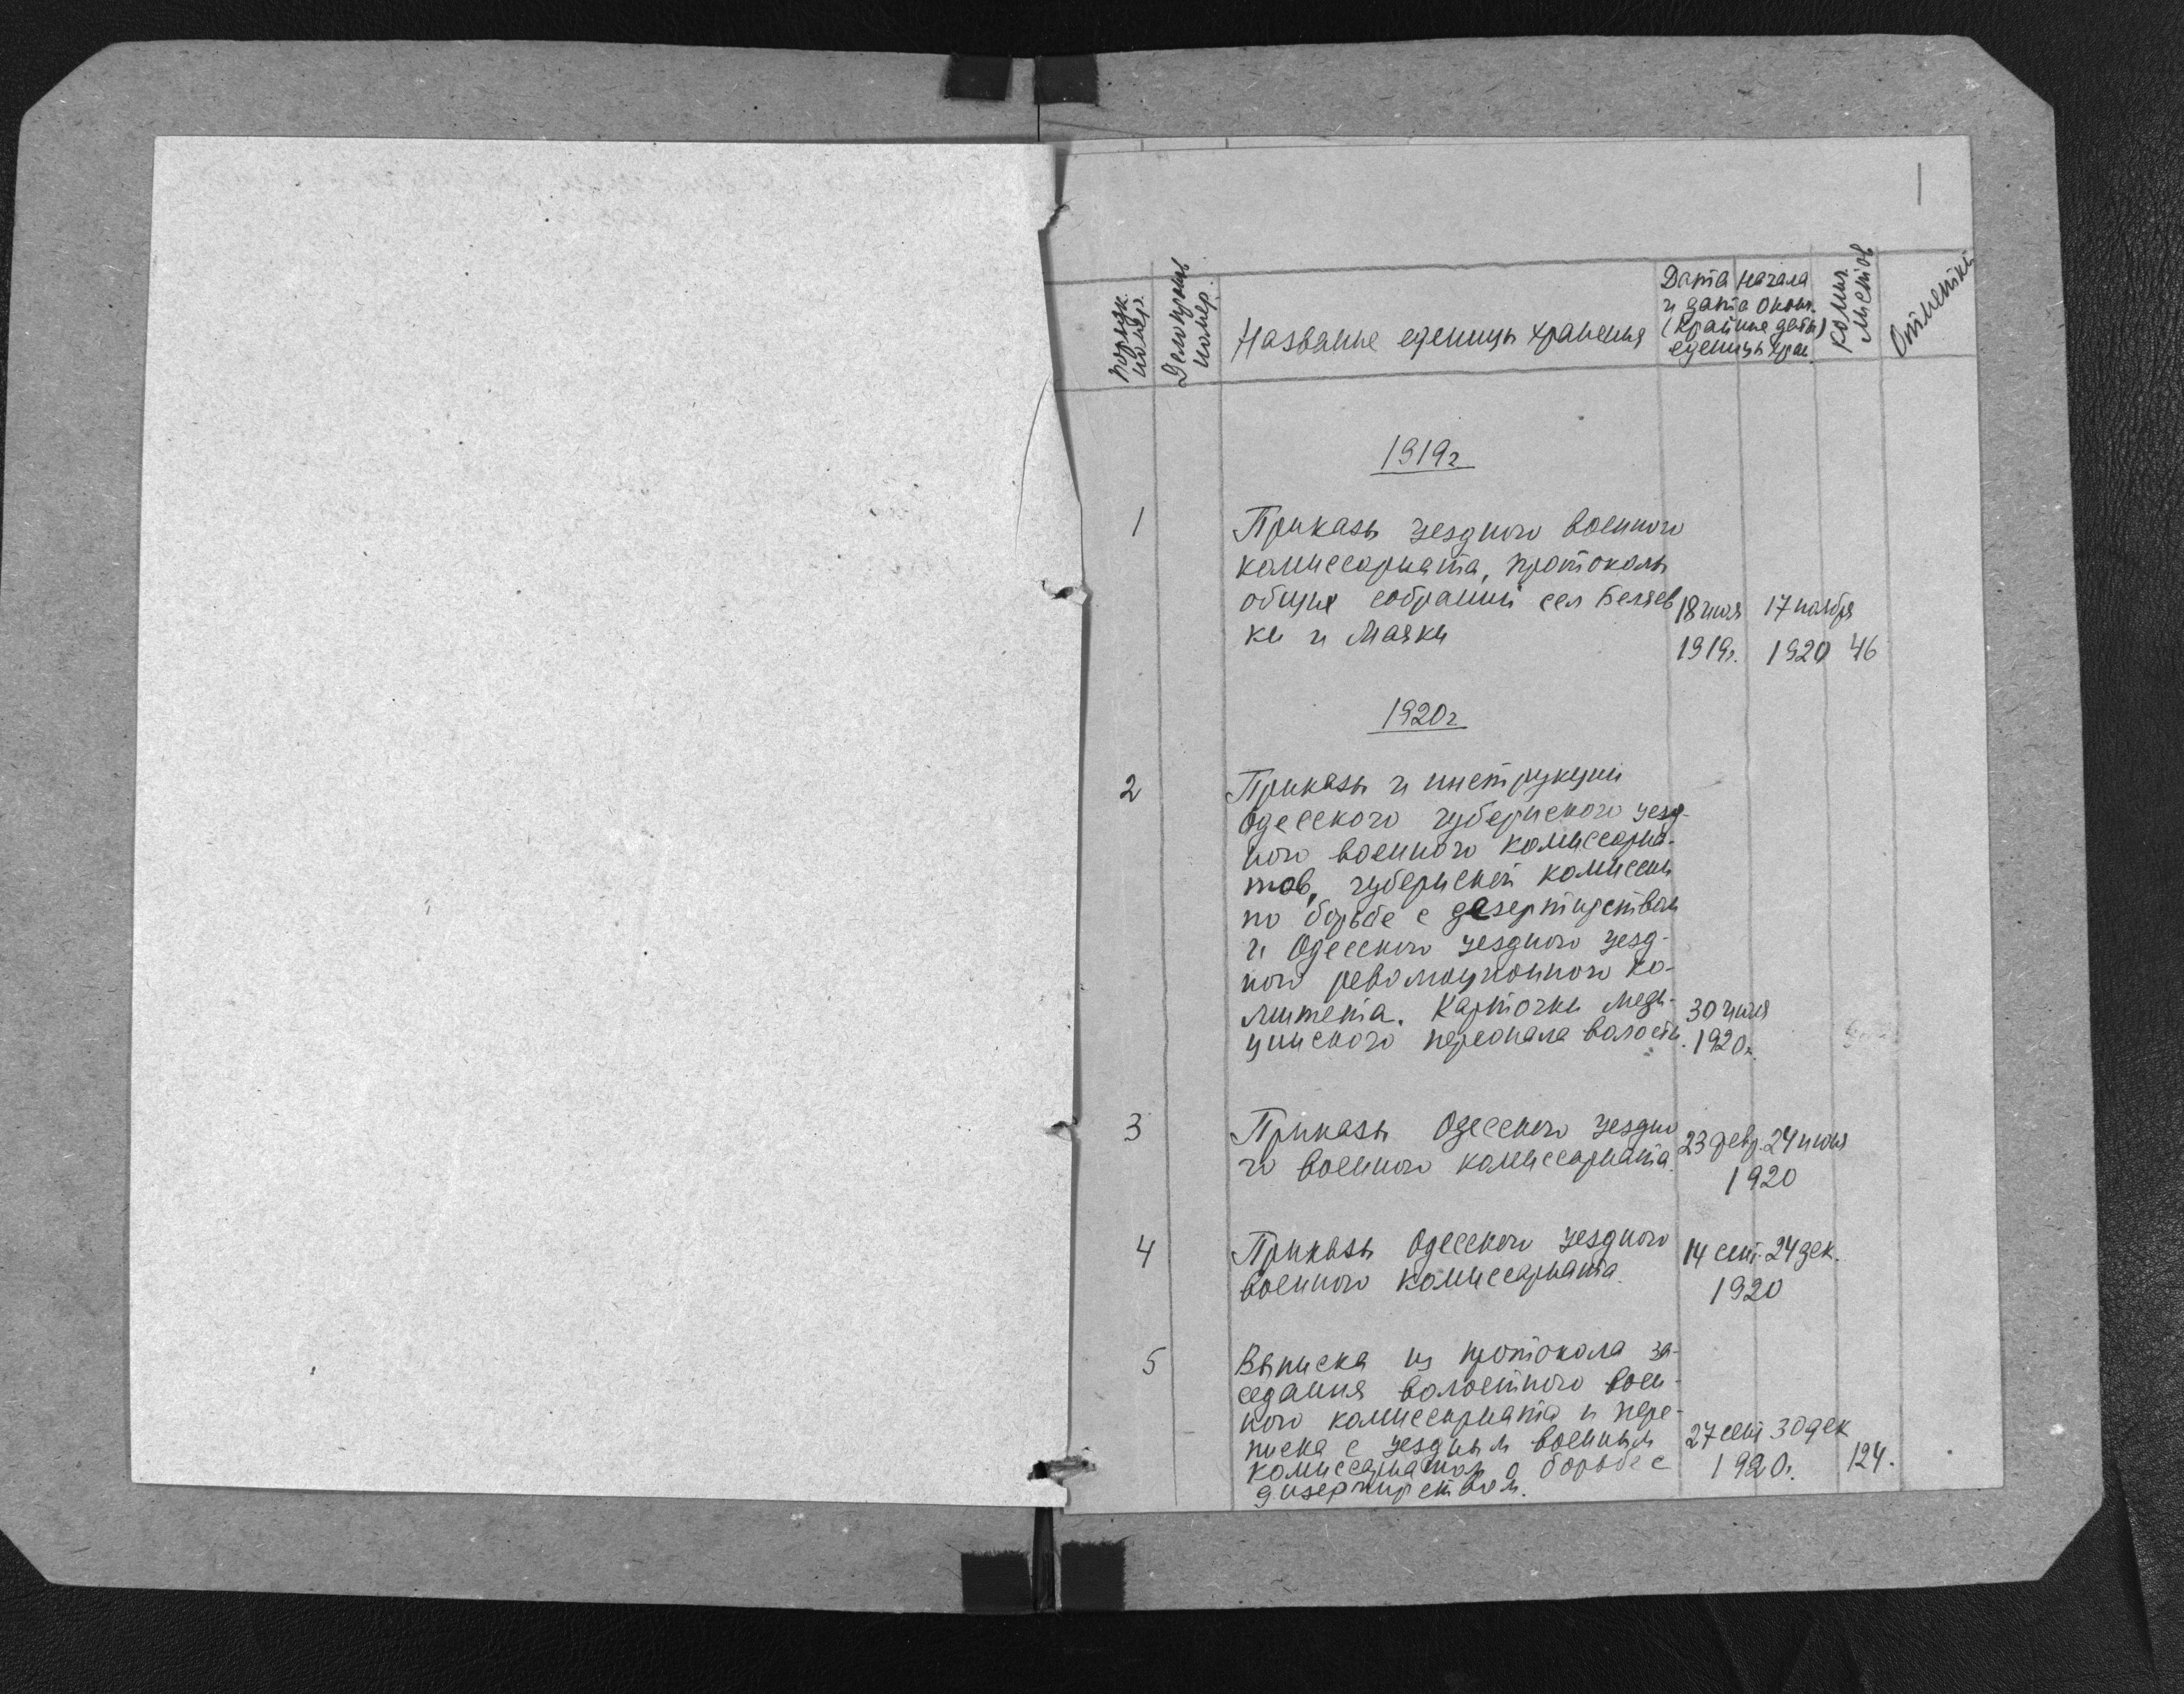 1
Порядк. номер.
Делопроизв номер.
Название еденицы хранения
Дата начала
и дата оконч.
(крайние даты)
еденицы хран.
Колич. листов
Отметки
1919г
1 Приказы уездного военного
комиссариата, протоколы
общих собраний сел Беляев 18 июля 17 ноября
ки и Маяки 1919г. 1920 46
1920г
2 Приказы и инструкции
Одесского губернского уезд-
ного военного комиссариа-
тов, губернской комиссии
по борьбе с дезертирством
и Одесского уездного уезд-
ного революционного ко-
митета. Карточки меди- 30 июля
цинского персонала волости. 1920г.
3 Приказы Одесского уездно 23 февр. 24 июня
го военного комиссариата. 1920
4 Приказы Одесского уездного 14 сент. 24 дек.
военного комиссариата. 1920
5 Выписка из протокола за-
седания волостного воен-
ного комиссариата и пере-
писка с уездным военным 27 сент 30 дек
комиссариатом о борьбе с 1920г. 124.
дизертирством.